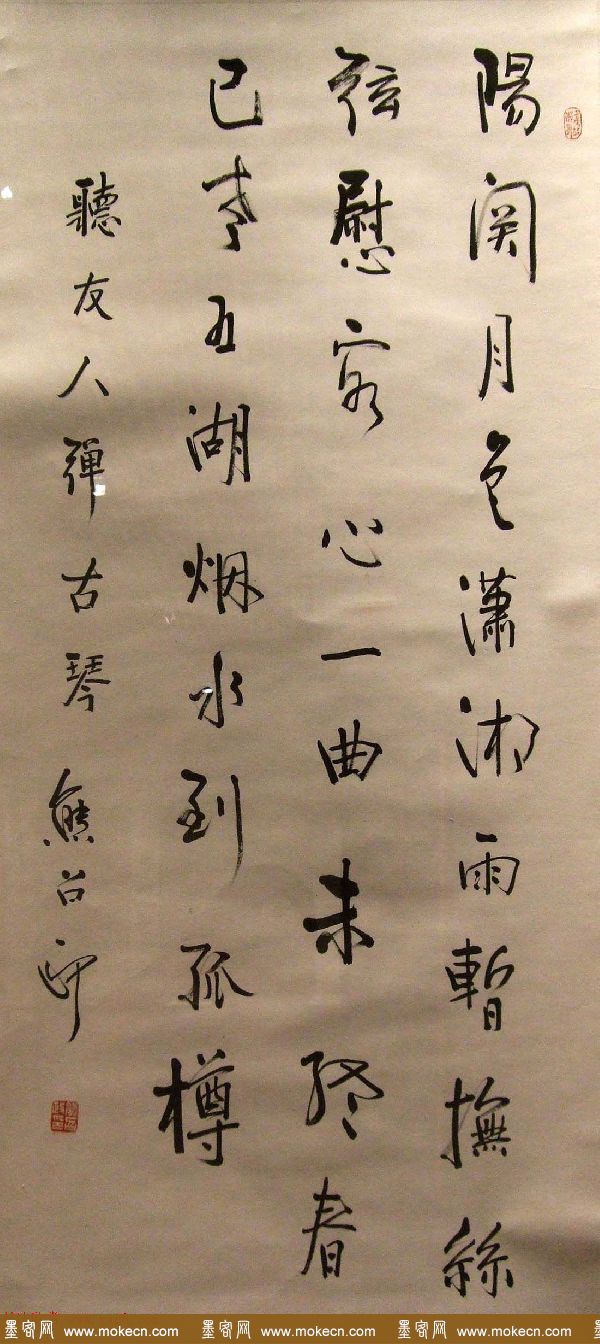 陽関月色瀟湘雨暫撫絲
弦慰客心一曲未終春
已老五湖烟水到孤樽
聽友人彈古琴 熊召政
墨客网 www.mokecn.com 墨客网 www.mokecn.com 墨客网 www.mokecn.com